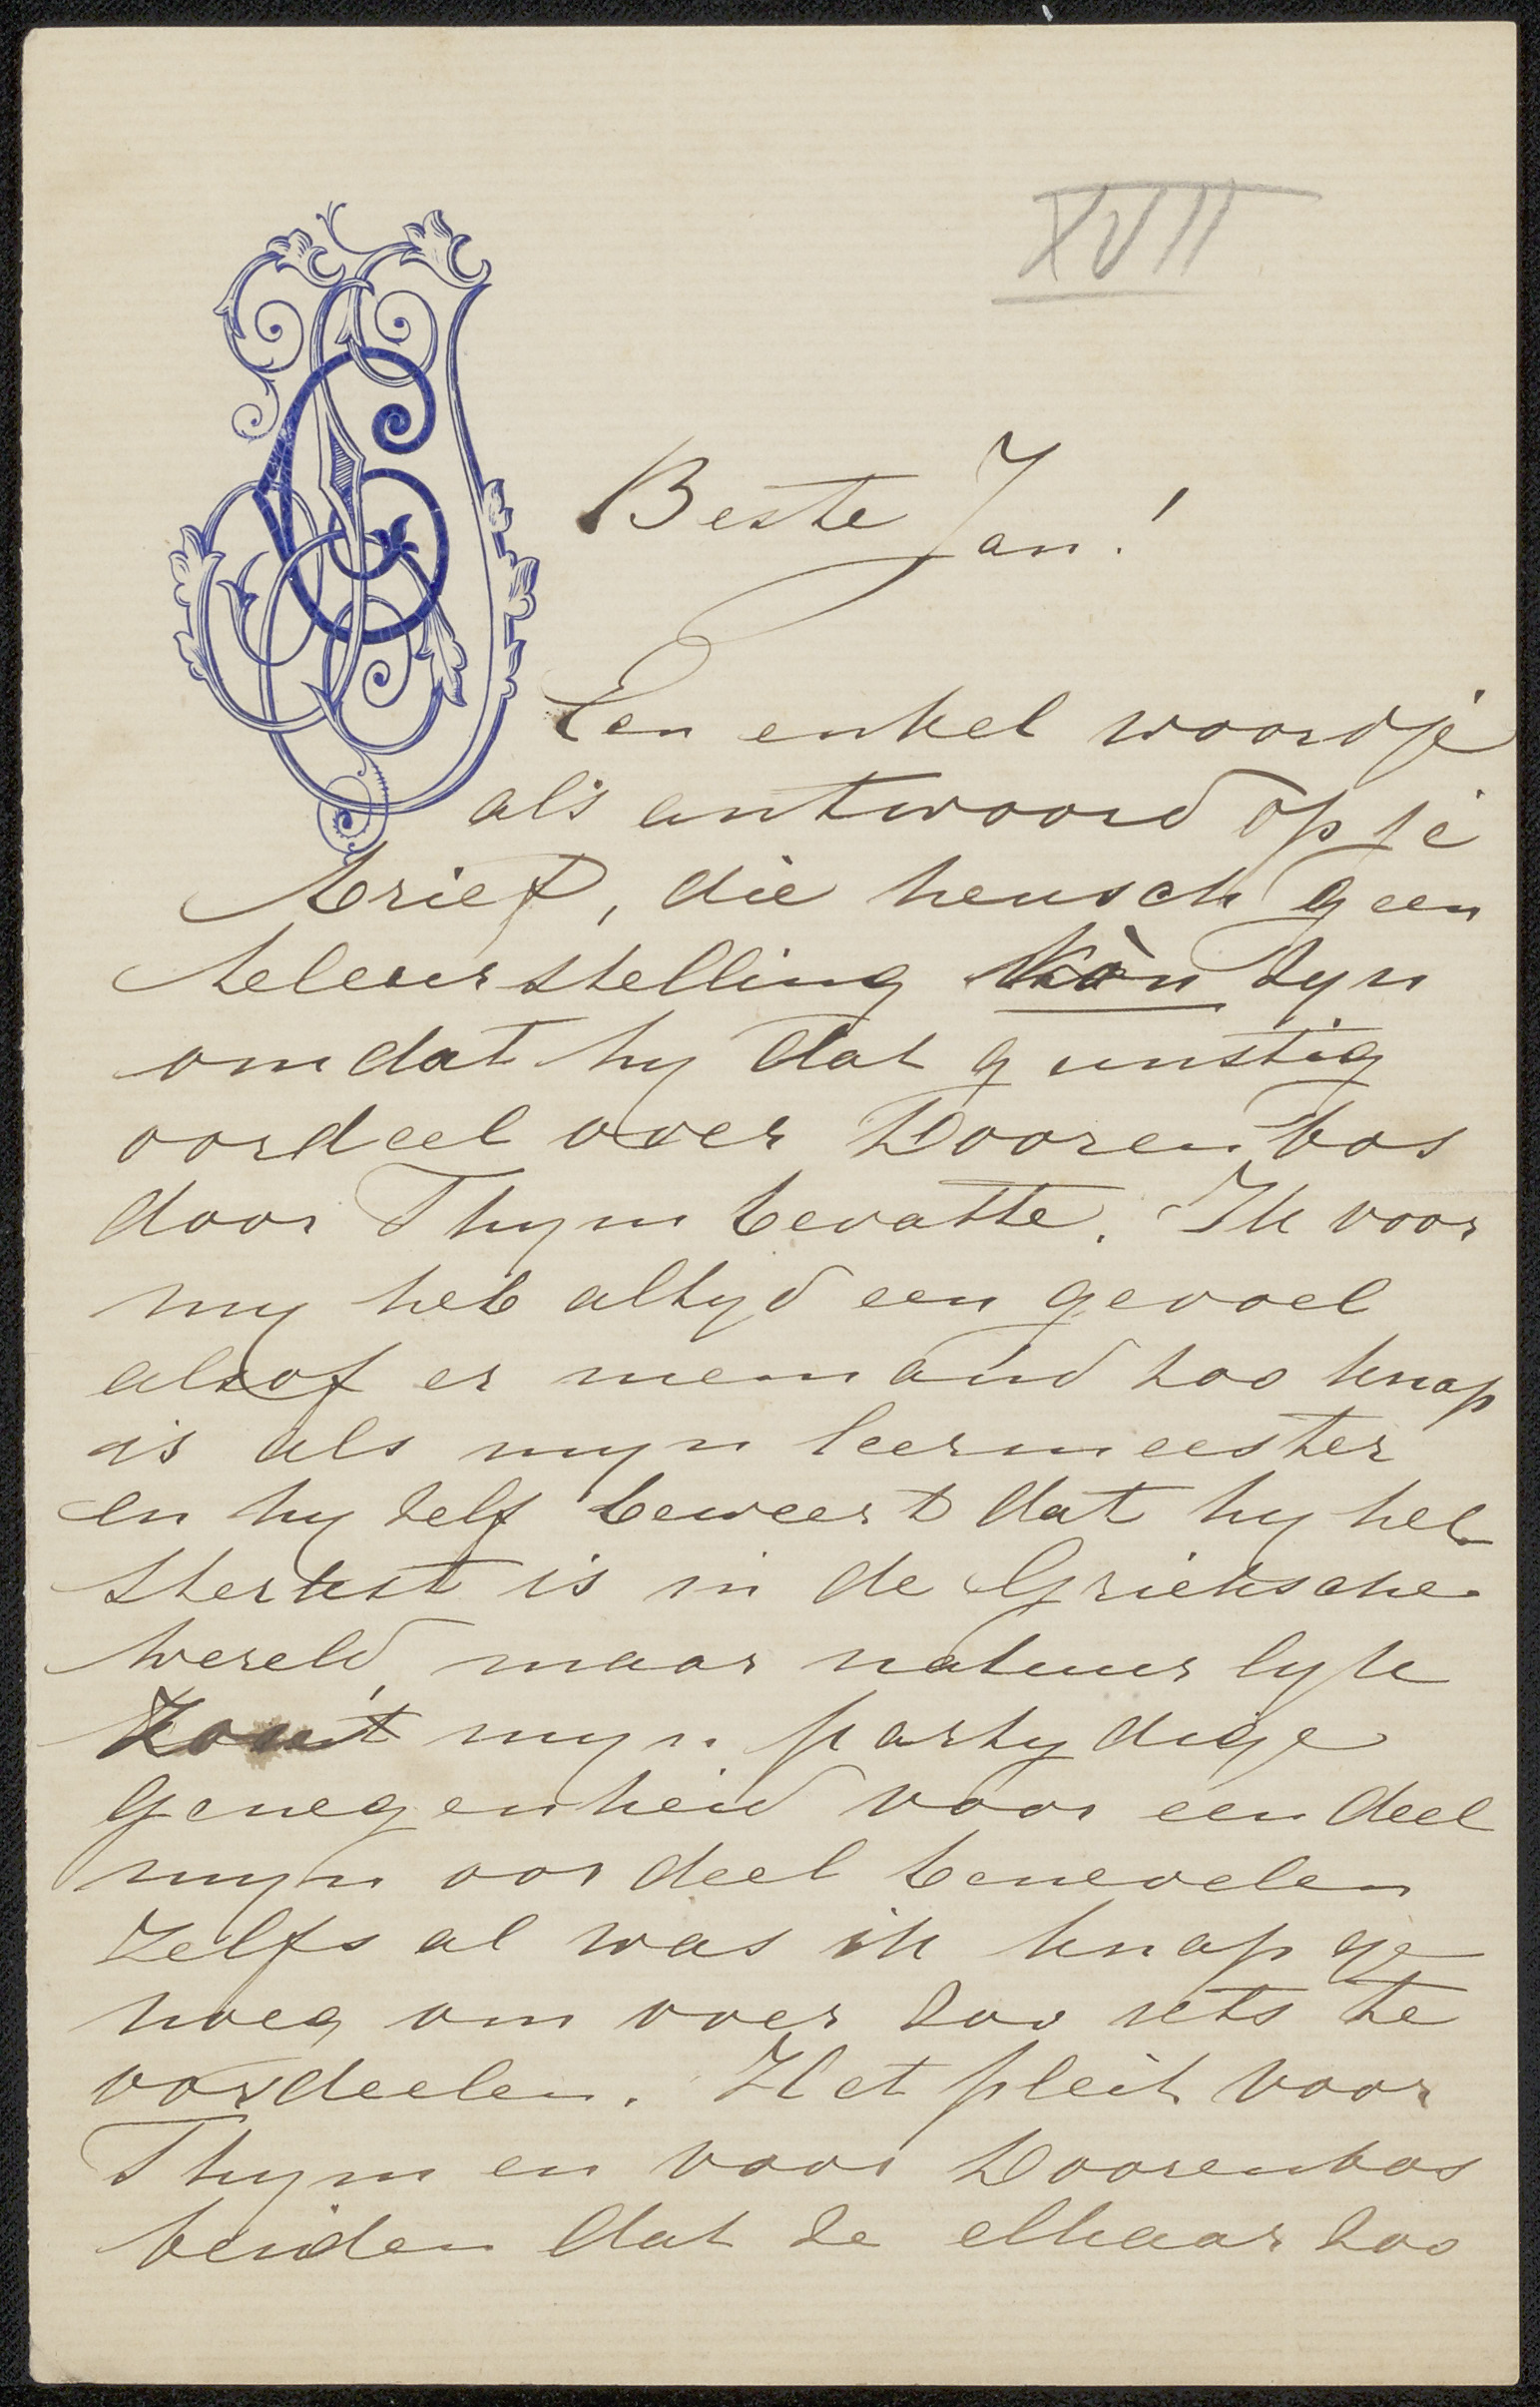 XVII
Beste Jan!
Een enkel woordje
als antwoord op je
brief, die heusch geen
teleurstelling kòn zyn
omdat hy dat gunstig
oordeel over Doorenbos
door Thym bevatte. Ik voor
my heb altyd een gevoel
alsof er niemand zoo knap
is als myn leermeester
en hy zelf beweert dat hy het
sterkst is in de Grieksche
wereld, maar natuurlyk
zou myn partydige
genegenheid voor een deel
myn oordeel benevelen
zelfs al was ik knap ge
noeg om over zoo iets te
oordeelen. Het pleit voor
Thym en voor Doorenbos
beiden dat ze elkaar zoo